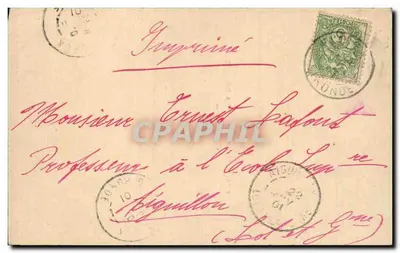 Imprimé
Monsieur Ernest Lafont
Professeur à l'Ecole Supre
Aiguillon
(Lot et Gne)
CPAPHIL